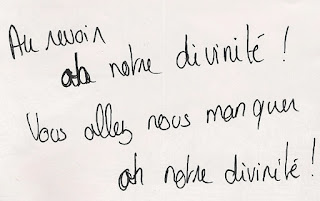 Au revoir
oh notre divinité !
Vous allez nous manquer
oh notre divinité !